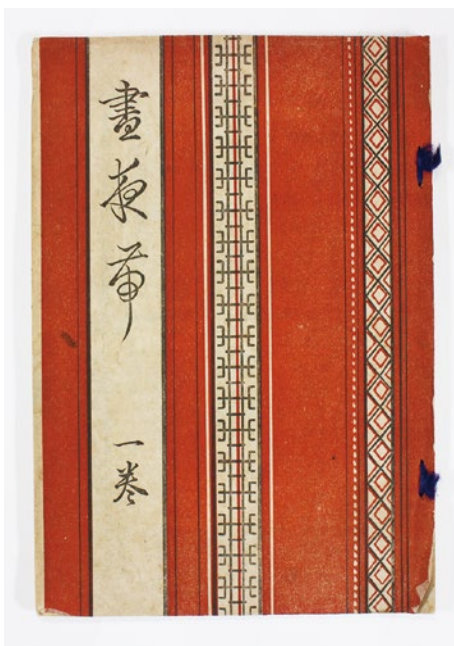 晝夜帯
一巻